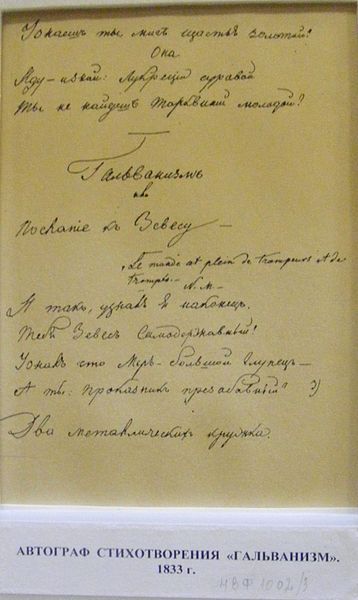 Узнаешь ты мигъ щастья золотой!
Она
Лукреціи суровой
Ты не найдешь Тарквиній молодой!
Гальванизмъ
или
Посланіе къ Зевесу —
„Le monde est plein de trompeurs & de
trompés. —
И такъ, узналъ я наконецъ
Тебя Зевесъ Самодержавный!
Узналъ что Міръ — большой Глупецъ —
А ты: проказникъ презабавный! 3)
Два металлическихъ кружка.
АВТОГРАФ СТИХОТВОРЕНИЯ «ГАЛЬВАНИЗМ».
1833 г.
НВФ 1002/3